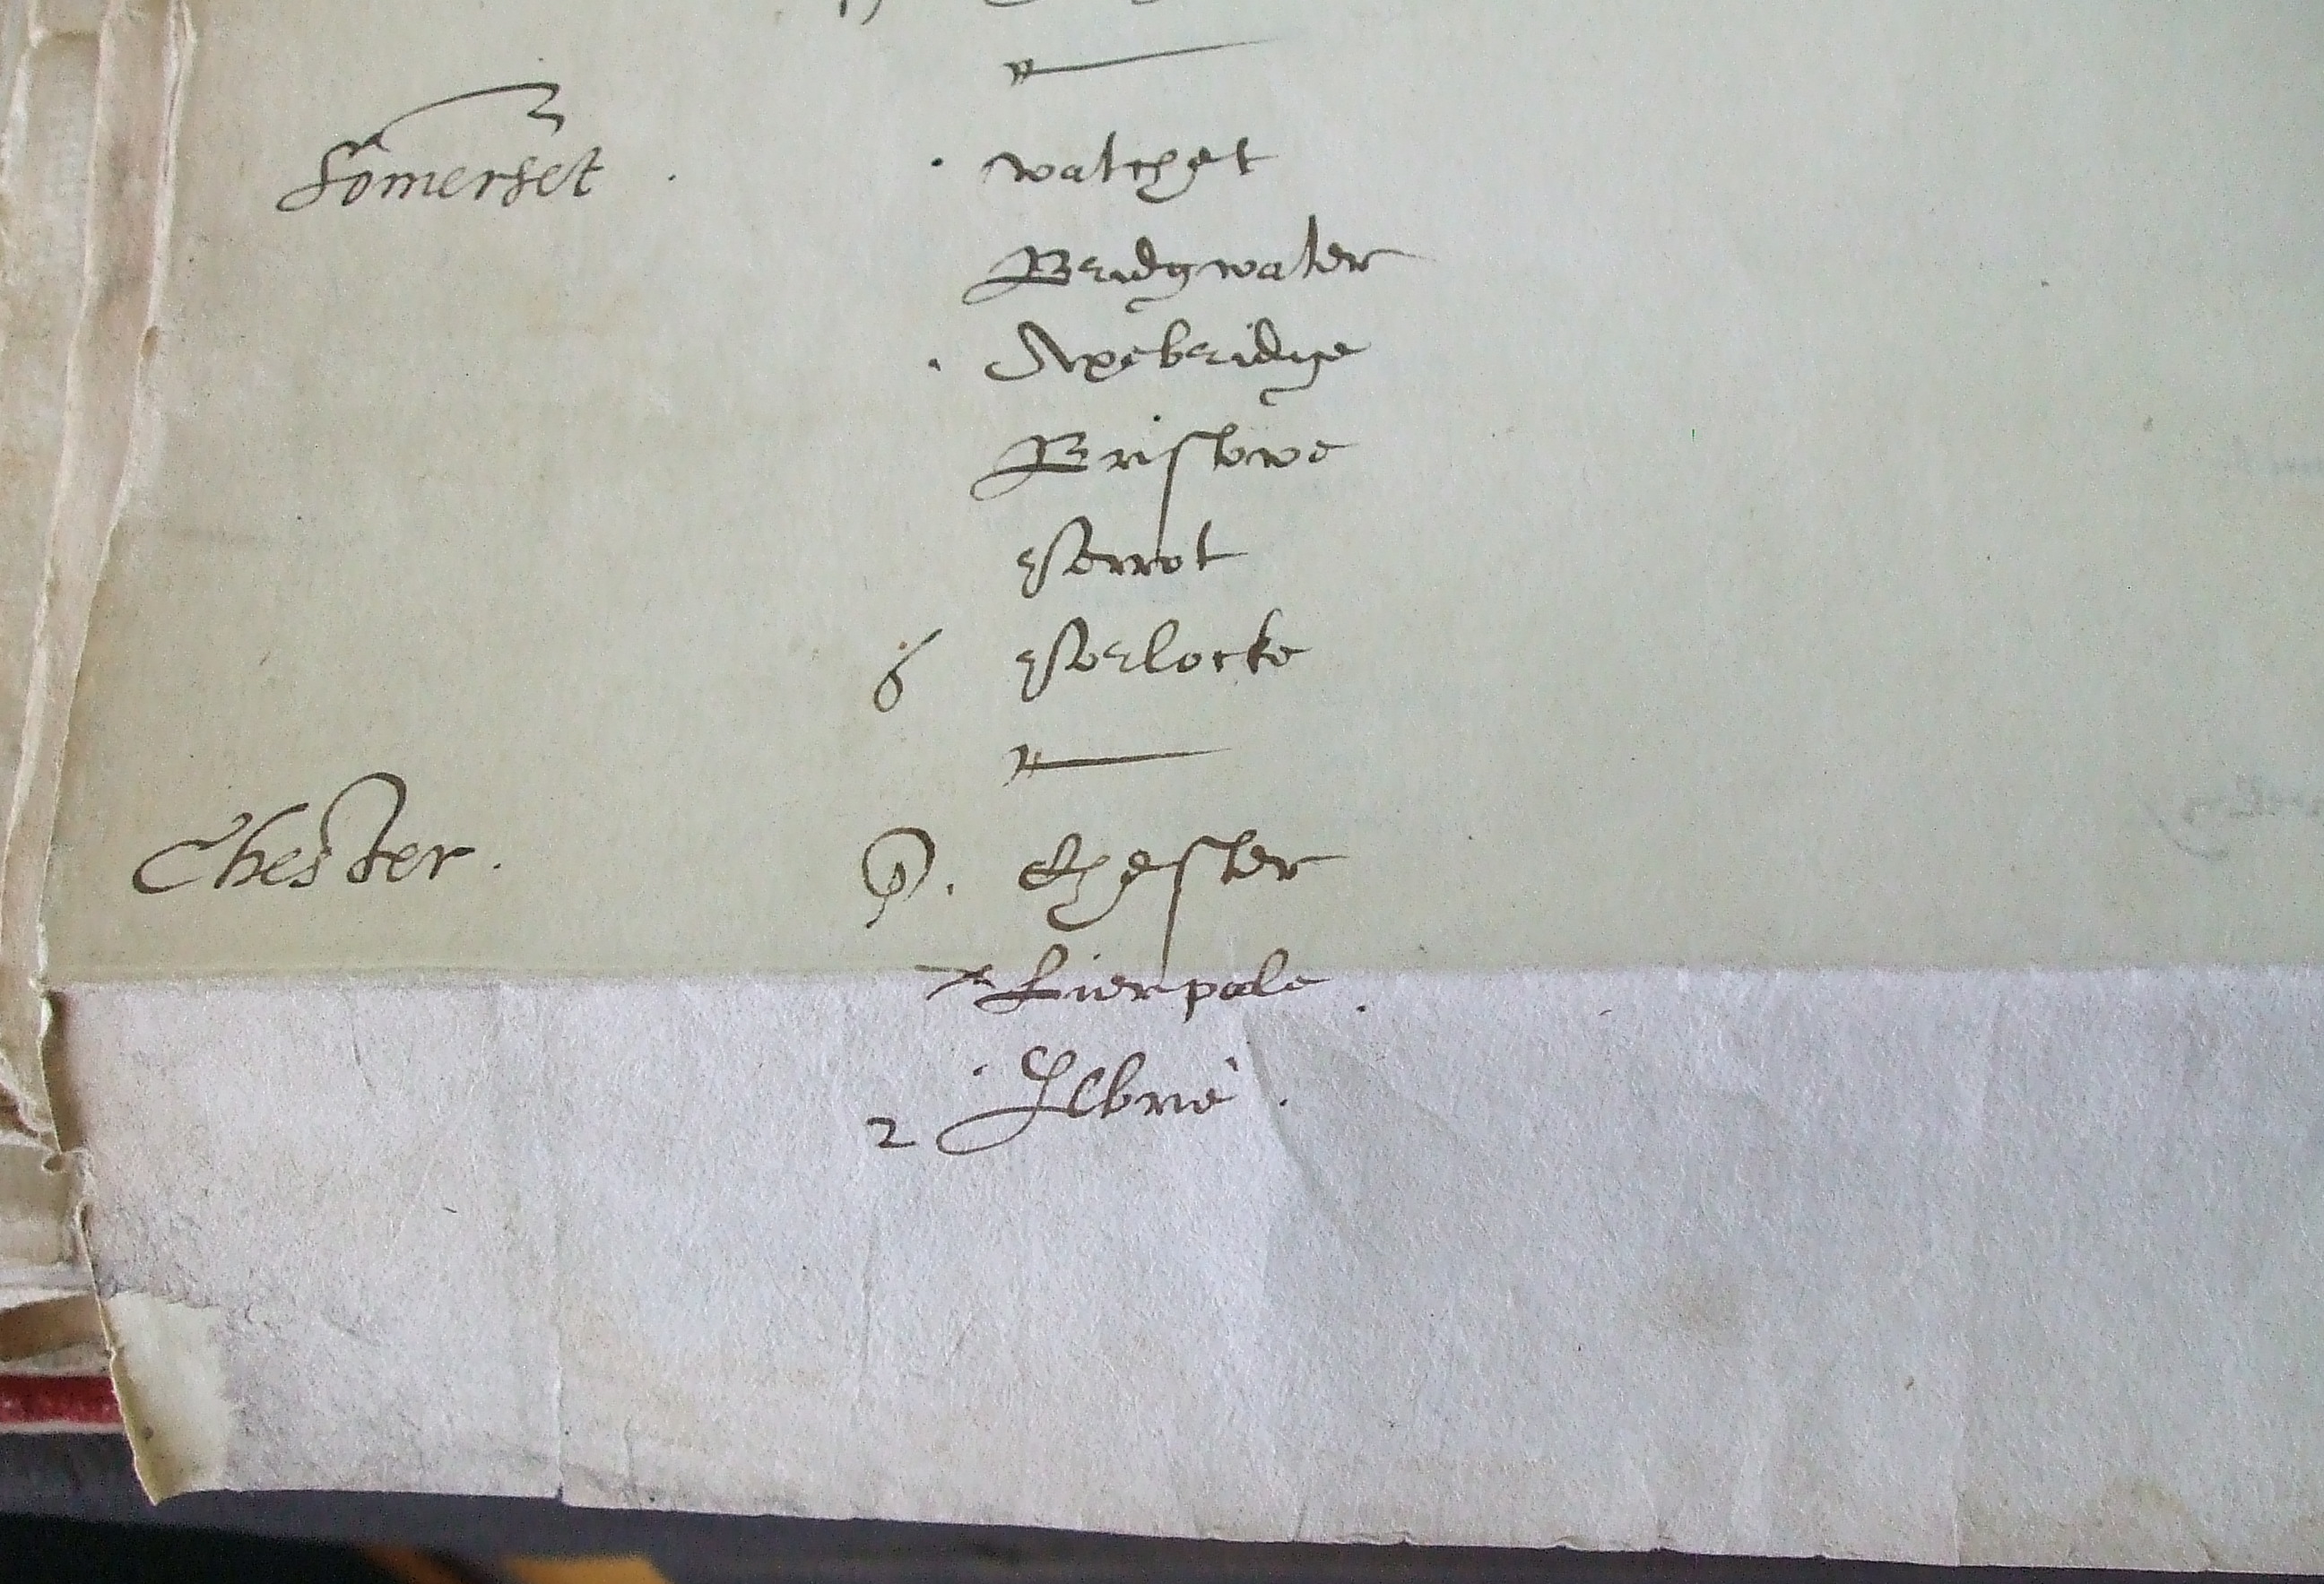 Somerset . . watchet
Bridgwater
. Axebridge
Bristowe
Perrot
6 Porlocke
Chester . . Chester
Lierpole .
2 Ilbrie .